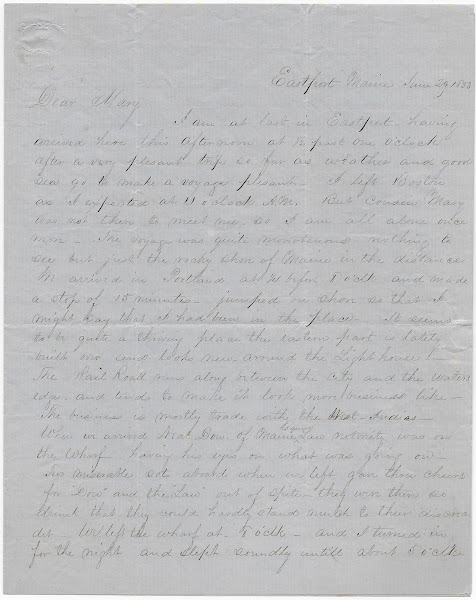 Eastport Maine June 29, 1853
Dear Mary
I am at last in Eastport having
arived here this afternoon at ½ past one o'clock
after a very plesant trip so far as weather and good
sea go to make a voyage plesant - I left Boston
as I expected at 11 o'clock A.M. But Cousin Mary
was not there to meet me, so I am all alone once
more - The voyage was quite monotonous nothing to
see but just the rocky shore of Maine in the distance
We arrived in Portland at ¼ before 8 oclk and made
a stop of 15 minutes - jumped on shore so that I
might say that I had been in the place - It seems
to be quite a thriving place the eastern part is lately
built over and look new around the Light house! -
The Rail Road runs along between the city and the waters
edge and tends to make it look more business like -
The business is mostly trade with the West Indies -
When we arrived Neal Dow of Maine Liquor Law notoriety was on
the Wharf having his eyes on what was going on -
Six miserable sots aboard when we left gave three cheers
for "Dow" and the "Law" out of spite - they were then so
drunk that they could hardly stand much to their
We left the wharf at 8 oclk - and I turned in
for the night and slept soundly untill about 5 oclk